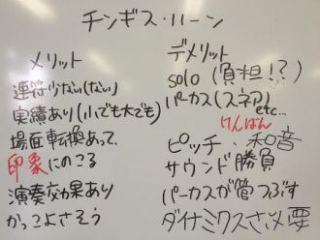 チンギス・ハーン
メリット
連符少ない(ない)
実績あり(小でも大でも)
場面転換あって、
印象にのこる
演奏効果あり
かっこよさそう
デメリット
solo(負担!?)
パーカス(スネア)etc...
けんばん
ピッチ・和音
サウンド勝負
パーカスが管つぶす
ダイナミクスさ必要